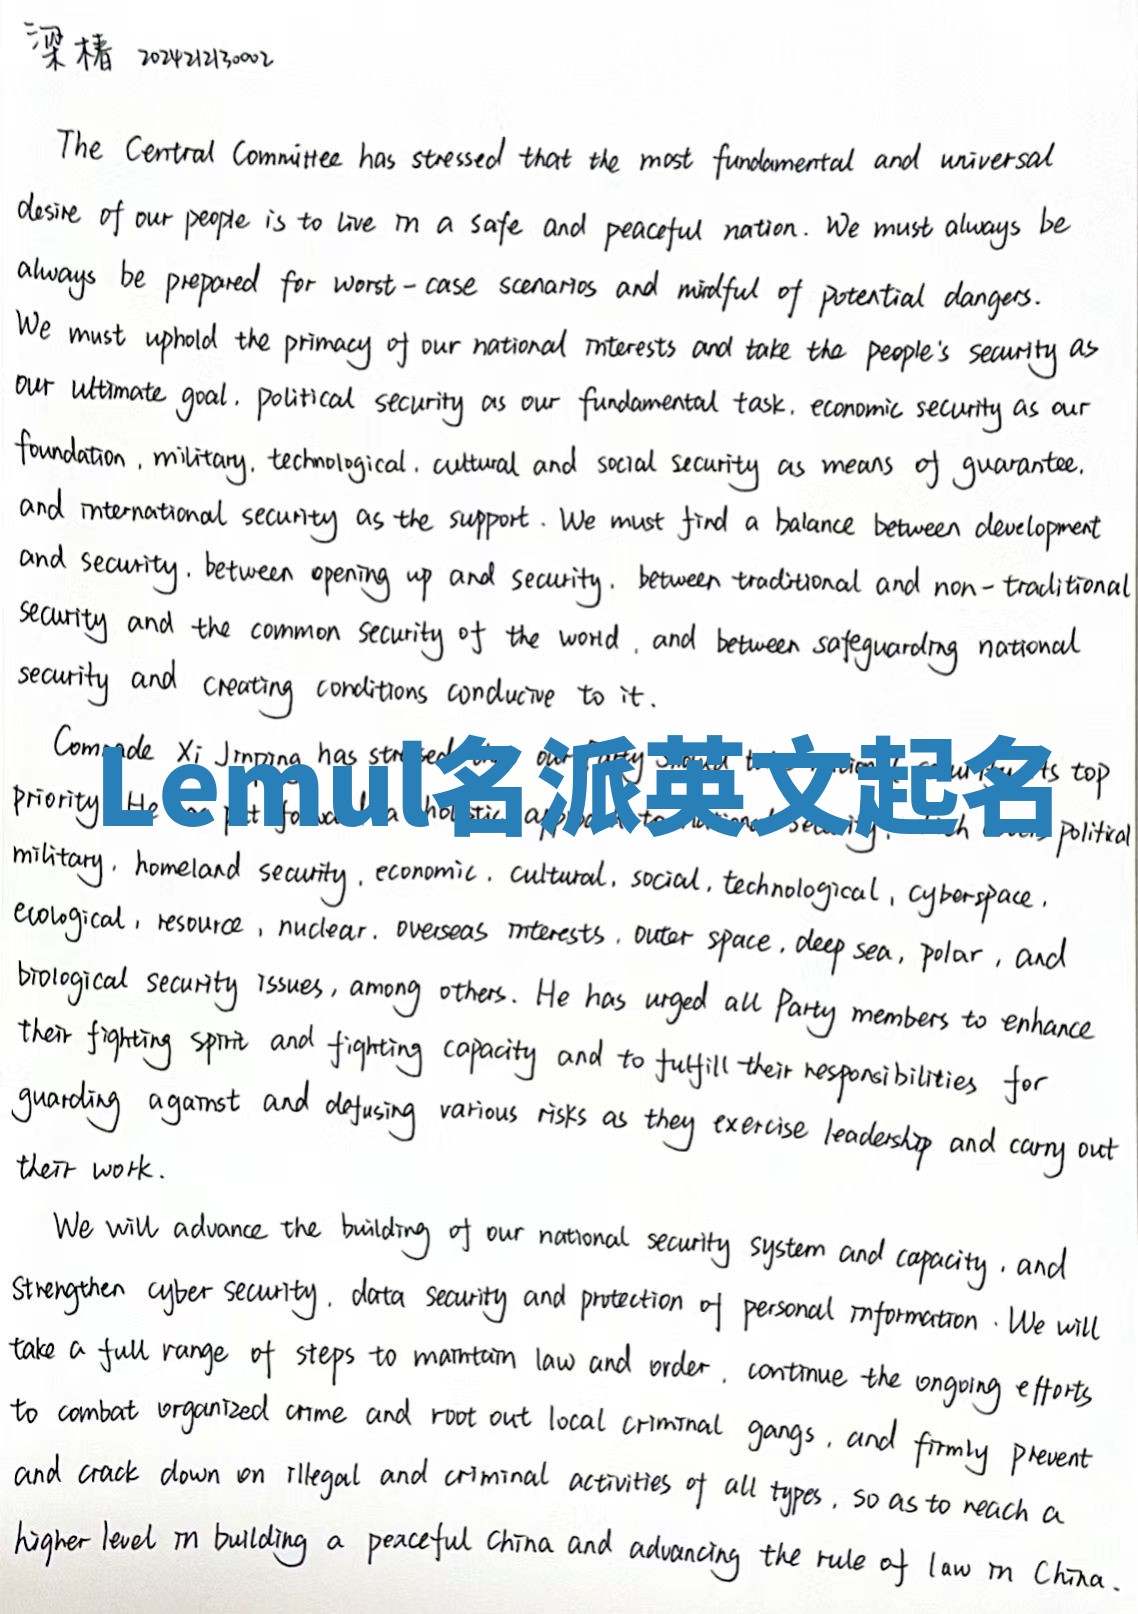 梁椿 2024212130002
The Central Committee has stressed that the most fundamental and universal
desire of our people is to live in a safe and peaceful nation. We must always be
always be prepared for worst-case scenarios and mindful of potential dangers.
We must uphold the primacy of our national interests and take the people's security as
our ultimate goal, political security as our fundamental task, economic security as our
foundation, military, technological, cultural and social security as means of guarantee,
and international security as the support. We must find a balance between development
and security, between opening up and security, between traditional and non-traditional
security and the common security of the world, and between safeguarding national
security and creating conditions conducive to it.
Comrade Xi Jinping has stressed our Party should top
Lemul名派英文起名
priority He put forward a holistic approach to national security, political
military, homeland security, economic, cultural, social, technological, cyberspace,
ecological, resource, nuclear, overseas interests, outer space, deep sea, polar, and
biological security issues, among others. He has urged all Party members to enhance
their fighting spirit and fighting capacity and to fulfill their responsibilities for
guarding against and defusing various risks as they exercise leadership and carry out
their work.
We will advance the building of our national security system and capacity, and
strengthen cyber security, data security and protection of personal information. We will
take a full range of steps to maintain law and order, continue the ongoing efforts
to combat organized crime and root out local criminal gangs, and firmly prevent
and crack down on illegal and criminal activities of all types, so as to reach a
higher level in building a peaceful China and advancing the rule of law in China.